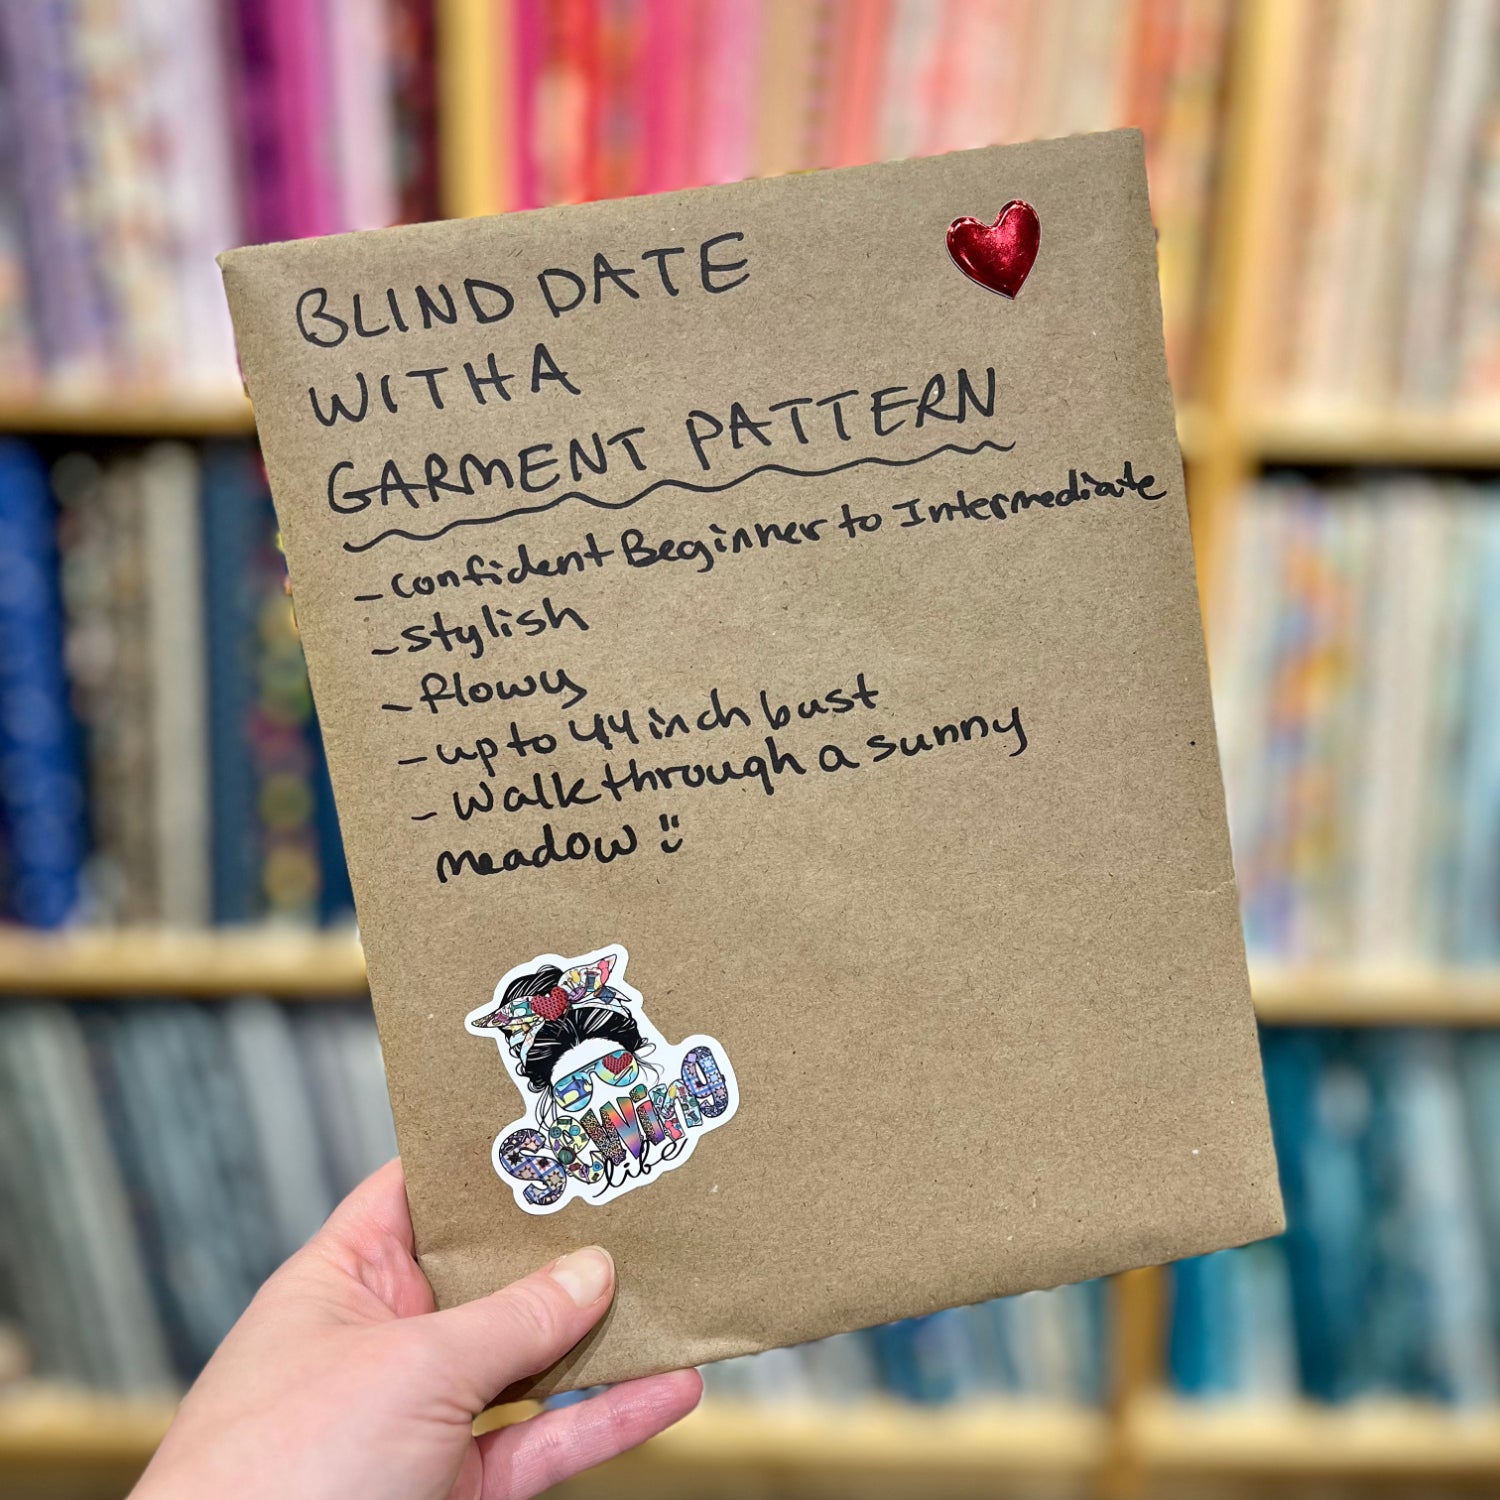 BLIND DATE
WITH A
GARMENT PATTERN
- confident Beginner to Intermediate
- stylish
- flowy
- up to 44 inch bust
- Walk through a sunny
meadow
sewing
life